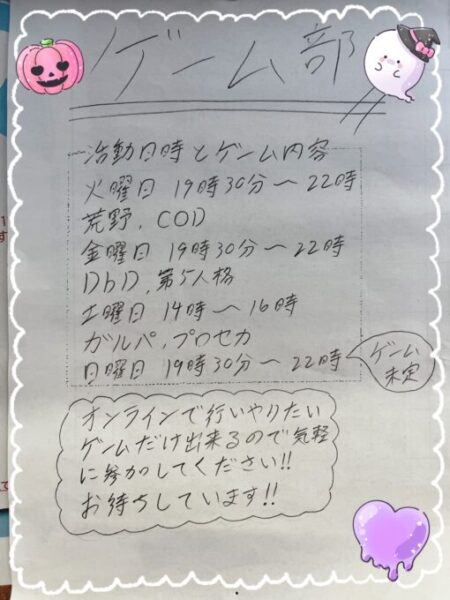 ゲーム部
活動日時とゲーム内容
火曜日 19時30分〜22時
荒野、COD
金曜日 19時30分〜22時
DbD、第5人格
土曜日 14時〜16時
ガルパ、プロセカ
日曜日 19時30分〜22時
ゲーム
未定
オンラインで行いやりたい
ゲームだけ出来るので気軽
に参加してください!!
お待ちしています!!